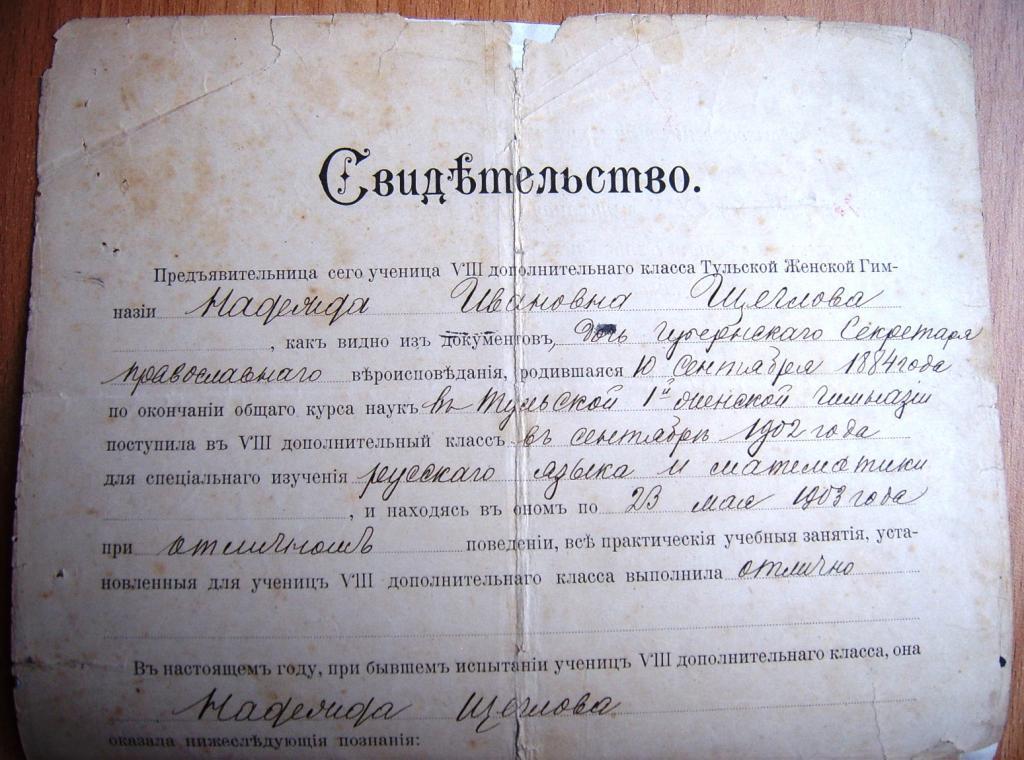 Свидѣтельство.
Предъявительница сего ученица VIII дополнительнаго класса Тульской Женской Гим-
назіи Надежда Ивановна Щеглова
, какъ видно изъ документовъ, дочь Губернскаго Секретаря
православнаго вѣроисповѣданія, родившаяся 10 сентября 1884 года
по окончаніи общаго курса наукъ въ Тульской 1й женской гимназіи
поступила въ VIII дополнительный классъ въ сентябрѣ 1902 года
для спеціальнаго изученія русскаго языка и математики
, и находясь въ ономъ по 23 мая 1903 года
при отличномъ поведеніи, всѣ практическія учебныя занятія, уста-
новленныя для ученицъ VIII дополнительнаго класса выполнила отлично
Въ настоящемъ году, при бывшемъ испытаніи ученицъ VIII дополнительнаго класса, она
Надежда Щеглова
оказала нижеслѣдующія познанія: